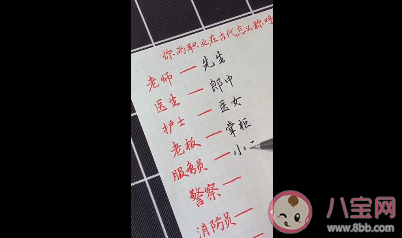 你的职业在古代怎么称呼
老师 — 先生
医生 — 郎中
护士 — 医女
老板 — 掌柜
服务员 — 小二
警察 —
消防员 —
八宝网
www.8bb.com